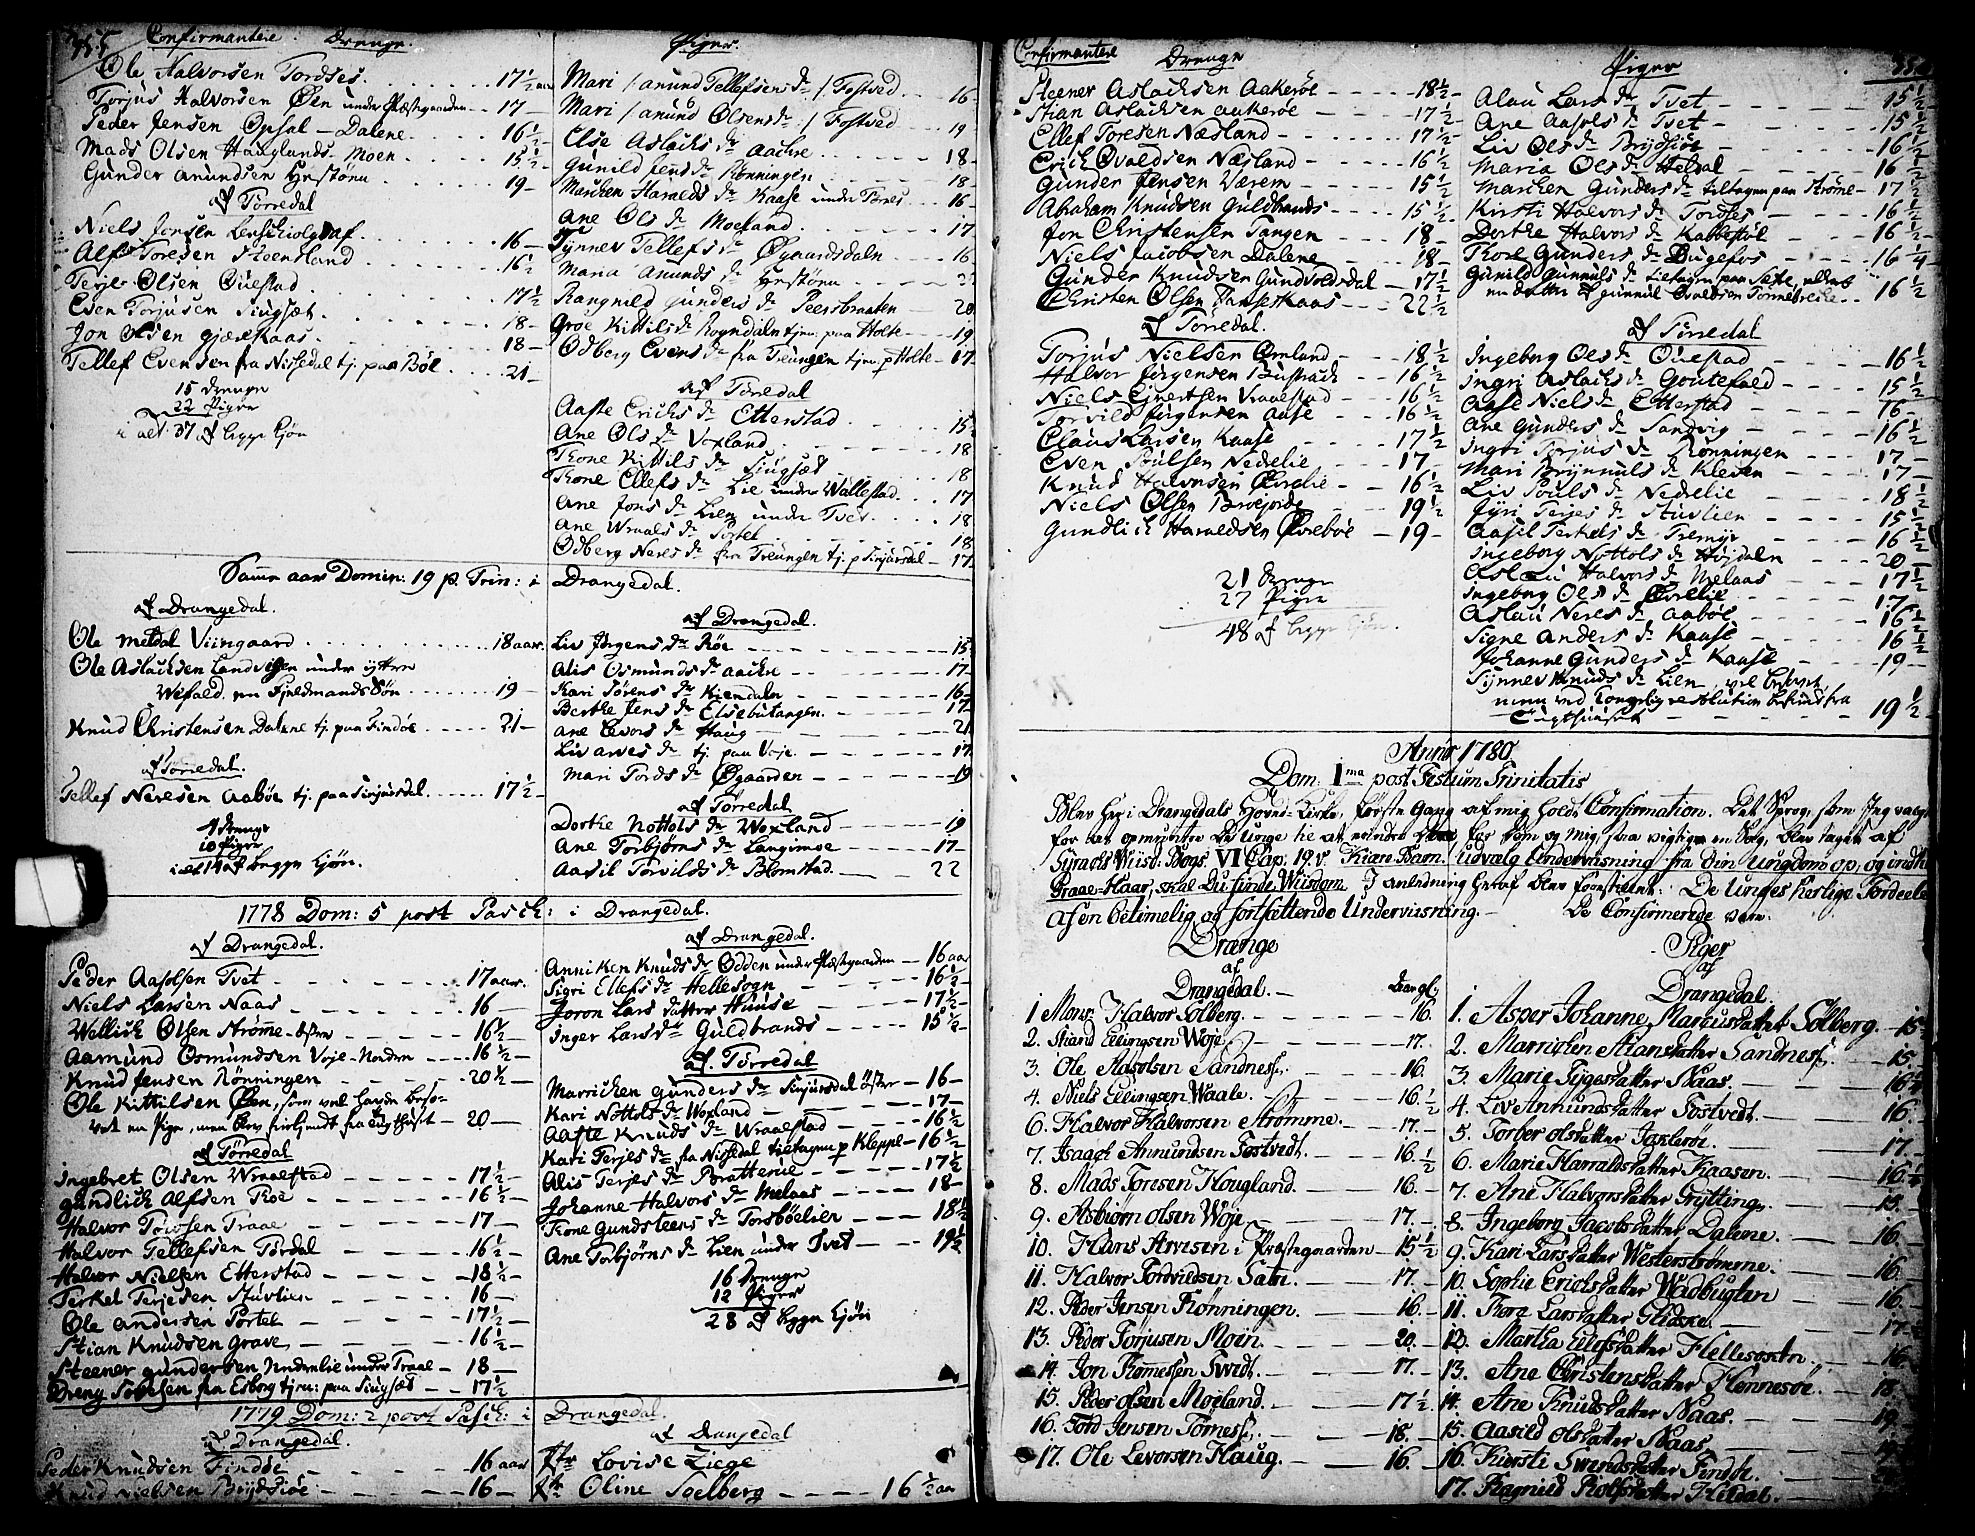 355 Confirmantere Drenge.
Ole Halvorsen Tordses. 17½ aar
Torjus Halvorsen Øen under Præstegaarden 17
Peder Jensen Opsal-Dalene 16½
Mads Olsen Hauglands-Moen 15½
Gunder Anundsen Hestøna 19
af Tørredal
Niels Jonsen 16
Alf Toresen Steensland 16½
Terjer Olsen Øuestad 17½
Even Torjusen Siugsæt 18
Jon Olsen Gjærekaas 18
Tellef Evensen fra Nissedal tj. paa Bøe 21
15 Drenge
22 Piger
i alt 37 af begge Kjøn
Piger.
Mari /Anund Tellefsens dr/ Fostved 16
Mari /Anund Olsens dr/ Fostved 19
Else Aslachs dr Aachre 18
Gunild Jens dr Rønningen 18
Marichen Haralds dr Kaase under Torres 16
Ane Ols dr Moeland 17
Synnev Tellefs dr Øygaardsdaln 16
Maria Anunds dr Hestøna
Rangnild Gunders dr Peersbraaten 20
Groe Kittils dr Rogndaln tjen. paa Holte 19
Odberg Evens dr fra Treungen tjen. p Holte 17
af Tørredal
Aaste Erichs dr Etterstad 15½
Ane Ols dr Voxland 18
Tone Kittils dr Siugsæt 18
Tone Ellefs dr Lie under Wallestad 17
Ane Jons dr Lien under Tvet 18
Ane Wraals dr Portet 18
Odberg Neres dr fra Treungen tj. p Sinjursdal 17
Samme aars Domin: 19 p. Trin: i Drangedal.
af Drangedal.
Ole Meldal Viingaard 18 aar
Ole Aslachsen Landvigen under yttre
Wefald, en Fjeldmands Søn 19
Knud Christensen Dalene tj. paa Findøe 21
af Tørredal.
Tellef Neresen Aabøe tj. paa Sinjursdal 17½
4 Drenge
10 Piger
i alt 14 af begge Kjøn.
af Drangedal.
Liv Jørgens dr Røe 15
Alis Osmunds dr Aachre 17
Kari Sørens dr Kiendaln 16
Berthe Jens dr Elsebutangen 17
Ane Levors dr Haug 21
Liv Arves dr tj. paa Voje 17
Mari Tords dr Øgaarden 19
af Tørredal
Dorthe Nottols dr Woxland 19
Ane Torbjørns dr Langimoe 17
Aasil Torvilds dr Blomstad 22
1778 Dom: 5 post Pasch: i Drangedal.
af Drangedal.
Peder Aasolsen Tvet 17 aar.
Niels Larsen Naas 16
Wellich Olsen Strøme-østre 16½
Aamund Osmundsen Voje-Norden 16½
Knud Jensen Rønningen 20½
Ole Kittilsen Øen, som vel havde beso-
vet en Pige, men blev frikjendt fra Tugthuset 20
af Tørredal
Ingebret Olsen Wraalstad 17½
Gundlich Alfsen Roe 16½
Halvor Tovsen Traae 17
Halvor Tellefsen Tørdal 16½
Halvor Nielsen Etterstad 18½
Terkel Terjesen Stuvlien 16
Ole Andersen Portet 17½
Stian Knudsen Grave 16½
Steener Gundersen Nedenlie under Traae 18
Dreng Tovesen fra Esborg tjen: paa Siugsæt 17½
af Drangedal.
Anniken Knuds dr Odden under Præstegaarden 16 aar
Sigri Ellefs dr Hellesogn 16½
Joron Lars datter Huuse 17½
Inger Lars dr Guldbrands 15½
af. Tørredal
Marrichen Gunders dr Sinjursdal Øster 16
Kari Nottols dr Woxland 17
Aaste Knuds dr Wraalstad 16½
Kari Terjes dr fra Nissedal tiltagen p Kleppe 16½
Alis Terjes dr Brattenie 17½
Johanne Halvors dr Melaas 18
Tone Gundsteens dr Torsbøelien 18½
Ane Torbjørns dr Lien under Tvet 19½
16 Drenge
12 Piger
28 af begge Kjøn
1779 Dom: 2 post Pasch: i Drangedal.
af Drangedal.
Peder Knudsen Findøe 16 aar
Knud Nielsen Brydsiøe 16
af Drangedal
Jfr Lovise Ziege
Jfr Oline Soelberg 16½ aar
Confirmantere Drenge
Steener Aslachsen Aakerøe 18½
Stian Aslachsen Aakerøe 17½
Ellef Toresen Næsland 17½
Erich Øvaldsen Næsland 16½
Gunder Jensen Værem 15½
Abraham Knudsen Guldbrands 15½
Jon Christensen Tangen 18
Niels Jacobsen Dalene 18
Gunder Knudsen Gundvoldsdal 17½
Christen Olsen Hanseskaas 22½
af Tørredal.
Torjus Nielsen Omland 18½
Halvor Jørgensen Bustrach 16½
Niels Gjvertsen Vraaestad 16½
Torvild Jørgensen Aase 16½
Claus Larsen Kaase 17½
Even Poulsen Nedelie 17
Knud Halvorsen Øvrelie 16½
Niels Olsen Broejorde 19½
Gundlich Haraldsen Øvrebøe 19
21 Drenge
27 Piger
48 af begge Kjøn.
Piger
Alau Lars dr Tvet 15½
Ane Aasols dr Tvet 15½
Liv Ols dr Brydsiøe 16½
Maria Ols dr Heldal 16
Marichen Gunders dr tiltagen paa Strøme 17½
Kirsti Halvors dr Tordses 16½
Dorthe Halvors dr Kabbestøl 16½
Thore Gunders dr Bugefos 16¼
Gunild Gunnuls dr tiltagen paa Sætre,
en datter af Gunnul Øvaldsen Tørnebrekke 16½
af Tørredal
Ingeborg Ols dr Øuestad 16½
Ingri Aslachs dr Goutefald 15½
Aase Niels dr Etterstad 16
Ane Gunders dr Sandvig 16½
Ingri Torjus dr Rønningen 17
Mari Brynnuls dr Kleven 17
Liv Pouls dr Nedelie 18½
Gyri Terjes dr Stuvlien 15½
Aasil Terkels dr Tremyr 16½
Ingeborg Nottols dr Højdaln 20
Aslau Halvors dr Melaas 17½
Ingeborg Ols dr Øvrelie 17
Aslau Neres dr Aabøe 16½
Signe Anders dr Kaase 16½
Johanne Gunders dr Kaase 19
Synnev Knuds dr Lien, vel besovet
men ved Kongelig resolution befriid fra
Tugthuuset 19½
Anno 1780
Dom. 1ma post Festum Trinitatis
Blev her i Drangedals Hoved-Kirke, første Gang af mig holdt Confirmation. Det Sprog, som Jeg valgte
for at opmuntre de unge til at erindre denne for dem og mig, saa vigtige en Dag, blev tagen af
Syrachs Viisd. Bogs VI Cap. 19. v. Kiære Barn, udvælg Underviisning fra din Ungdom op, og indtil
Graae-Haar, skal Du finde Wiisdom. I anledning heraf blev foerstillet: De unges herlige Fordeele
af en betimelig og fortsættende Underviisning.- De Confirmerede vare.
Drænge
af
Drangedal.
1 Mons. Halvor Solberg. 16.
2. Stiand Ellingsen Woje 17.
3. Ole Aasolsen Sandnes 16.
4. Niels Ellingsen Waale. 16½
6. Halvor Halvorsen Strømme. 17.
7. Isaach Anmundsen Fostvedt. 16½
8. Mads Toresen Hougland. 16.
9. Asbiørn Olsen Woje 17.
10. Hans Arvesen i Præstegaarden 15½
11. Halvor Tordvildsen Satre. 17.
12. Peder Jensen Rønningen. 16.
13. Peder Torjusen Moin. 20.
14. Jon Tomessen Tvedt. 17.
15. Peder Olsen Mojeland. 17½
16. Tord Jensen Tornes 18.
17. Ole Levorsen Haug. 16.
Piger
af
Drangedal.
1. Asper Johanne Marcusdatter Solberg. 15
2. Marrichen Stiansdatter Sandnes 15
3. Marie Tygesdatter Naas. 16½
4. Liv Anmundsdatter Fostvedt. 16.
5. Torber Olsdatter 17.
6. Marie Harraldsdatter Kaasen. 16½
7. Ane Halvorsdatter Grytting. 15.
8. Ingeborg Jacobsdatter Dalene. 16.
9. Kari Larsdatter Westerstrømme. 16.
10. Sophie Erichsdatter Wadbugten 16.
11. Tora Larsdatter Gliidske. 17½
12. Martha Ellefsdatter Hellesogn 16.
13. Ane Christensdatter Hennesøe. 18.
14. Ane Knudsdatter Naas. 19.
15. Aasild Olsdatter Naas
16. Kiersti Svendsdatter Findøe.
17. Ragnild Rolfsdatter Heldal.